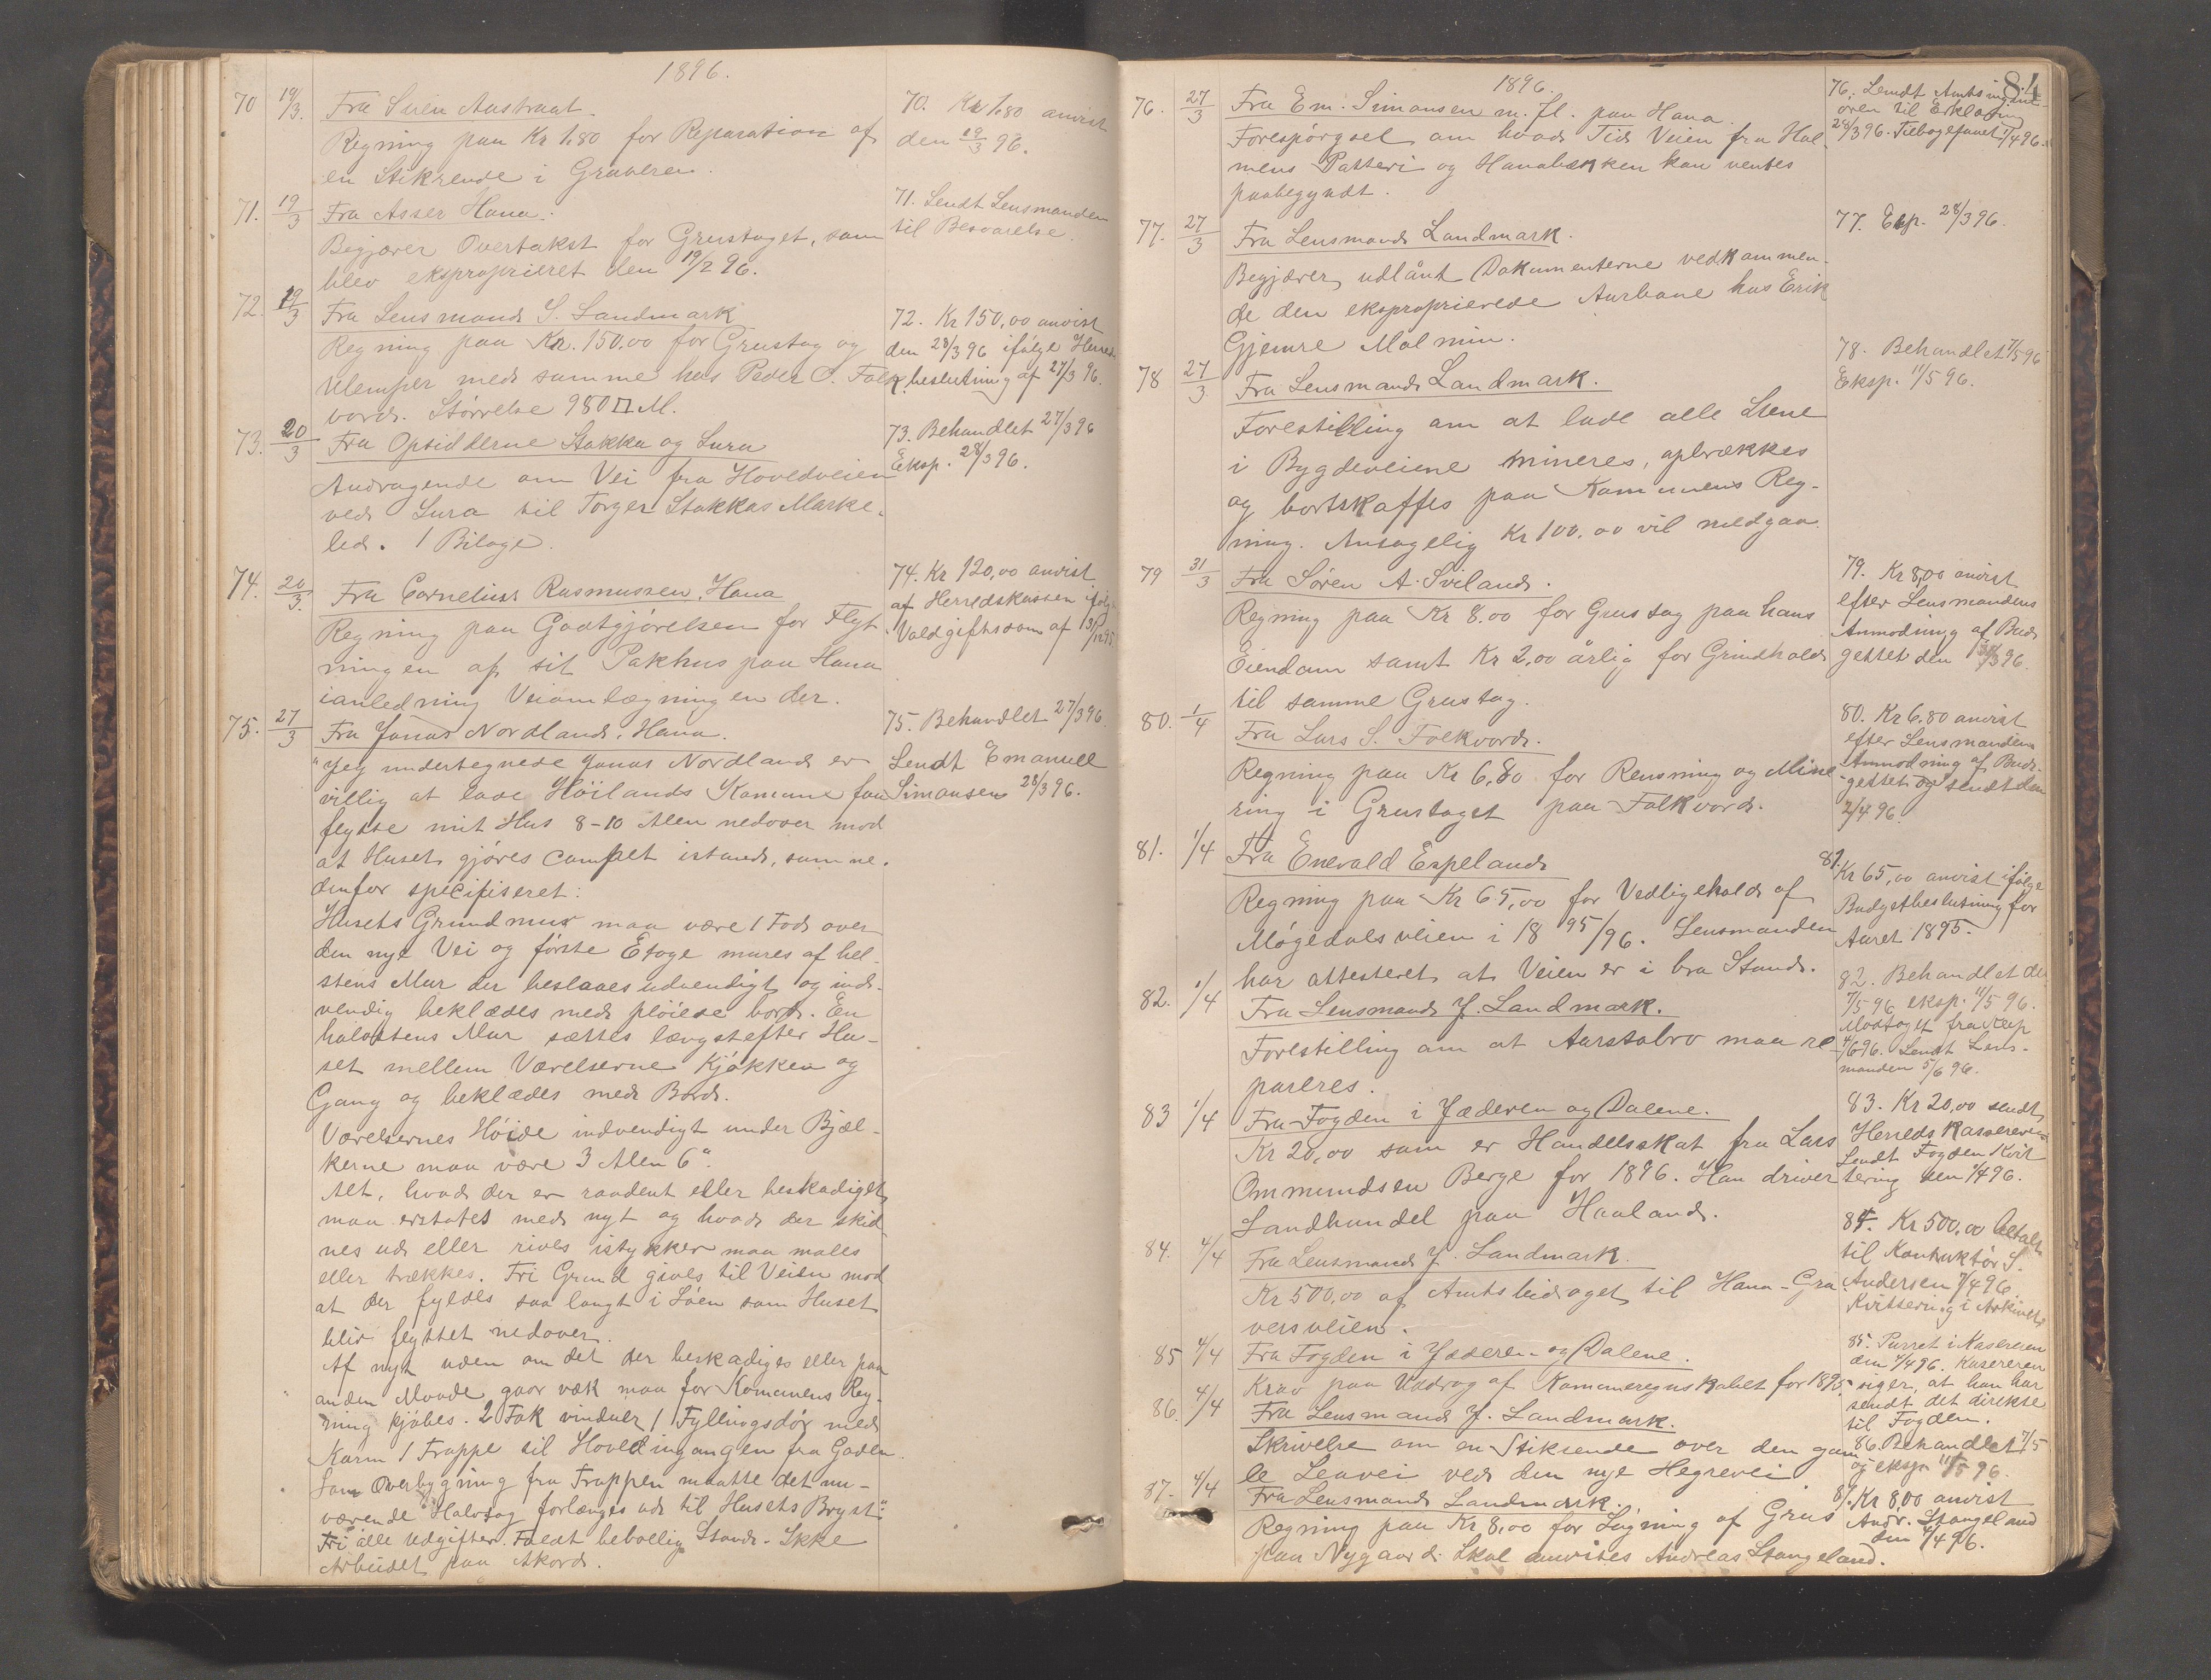 1896.
70 19/3. Fra Sören Austraat
Regning paa Kr 1.80 for Reparation af
en Stikrende i Graveren.
70. Kr 1.80 anvist
den 19/3 96.
71. 19/3 Fra Asser Hana.
Begjærer Overtakst for Grustaget, som
blev eksproprieret den 19/2 96.
71. Sendt Lensmanden
til Besvarelse.
72. 19/3 Fra Lensmand J. Landmark
Regning paa Kr. 150.00 for Grustag og
Ulemper med samme hos Peder S. Folk
vord. Størrelse 980 □ M.
72. Kr 150,00 anvist
den 28/3 96 ifølge Herreds
beslutning af 27/3 96.
73. 20/3 Fra Opsidderne Stokka og Lura
Andragende om Vei fra Hovedveien
ved Lura til Torger Stokkas Marke-
led. 1 Bilage.
73. Behandlet 27/3 96
Eksp. 28/3 96.
74. 20/3. Fra Cornelius Rasmussen, Hana
Regning paa Godtgjørelsen for Flyt
ningen af sit Pakhus paa Hana
ianledning Veiomlægningen der.
74. Kr 120,00 anvist
af Herredskassen ifølge
Voldgiftsdom af
75. 27/3 Fra Jonas Nordland, Hana.
"Jeg undertegnede Jonas Nordland er
villig at lade Höilands Komune faa
flytte mit Hus 8-10 Alen nedover mod
at Huset gjøres complet istand, som ne-
denfor specifiseret:
Husets Grundmur maa være 1 Fod over
den nye Vei og første Etage mures af hel-
stens Mur der beslaaes udvendigt og ind-
vendig beklædes med pløiede bord. En
halvstens Mur sættes langsefter Hu-
set mellem Værelserne Kjøkken og
Gang og beklædes med Bord.
Værelsernes Høide indvendigt under Bjæl-
kerne maa være 3 Alen 6".
Alt, hvad der er raadent eller beskadiget
maa erstates med nyt og hvad der skid
nes ud eller rives istykker maa males
eller trækkes. Fri Grund gives til Veien mod
at der fyldes saa langt i Søen som Huset
blir flyttet nedover.
Af nyt uden om det der beskadiges eller paa
anden Maade gaar væk maa for Komunens Reg-
ning kjøbes. 2 Fak vinduer 1 Fyllingsdør med
Karm 1 Trappe til Hovedingangen fra Gaden.
Som Overbygning fra Trappen maatte det nu-
værende Halvtag forlænges ud til Husets Bryst."
Fri alle Udgifter. Fuldt beboelig Stand. Ikke
Arbeidet paa Akord.
75. Behandlet 27/3 96.
Sendt Emanuel
Simonsen 28/3 96.
84
1896.
76. 27/3 Fra Em. Simonsen m. fl. paa Hana.
Forespørgsel om hvad Tid Veien fra Hol-
mens Patteri og Hanabækken kan ventes
paabegyndt.
76. Sendt Amtsingeni-
øren til Erklæring
28/3 96. Tilbagesendt 1/4 96.
77. 27/3 Fra Lensmand Landmark.
Begjærer udlånt Dokumenterne vedkommen-
de den eksproprierede Aurbane hos Erik
Gjemre Malmin.
77. Eksp. 28/3 96.
78 27/3 Fra Lensmand Landmark.
Forestilling om at lade alle Stene
i Bygdeveiene mineres, opbrækkes
og bortskaffes paa Komunens Reg-
ning. Antagelig Kr 100.00 vil medgaa.
78. Behandlet 7/5 96
Eksp. 11/5 96.
79 31/3 Fra Søren A. Sviland.
Regning paa Kr 8.00 for Grustag paa hans
Eiendom samt Kr 2,00 årlig for Grindhold
til samme Grustag.
79. Kr 8,00 anvist
efter Lensmandens
Anmodning af Bud
gettet den 31/3 96.
80. 1/4 Fra Lars S. Folkvord.
Regning paa Kr 6,80 for Rensning og Mine
ring i Grustaget paa Folkvord.
80. Kr 6.80 anvist
efter Lensmandens
Anmodning af Bud-
gettet og sendt den
2/4 96.
81. 1/4 Fra Enevald Espeland
Regning paa Kr 65,00 for Vedligehold af
Møgedalsveien i 18 95/96. Lensmanden
har attesteret at Veien er i bra Stand.
81. Kr 65,00 anvist ifølge
Budgetbeslutning for
Aaret 1895.
82. 1/4 Fra Lensmand J. Landmark.
Forestilling om at Aarstabro maa re-
pareres.
82. Behandlet de
7/5 96 eksp. 11/5 96.
Modtaget fra
4/6 96. Sendt Lens-
manden 5/6 96.
83 1/4 Fra Fogden i Jæderen og Dalene.
Kr 20,00 som er Handelsskat fra Lars
Ommundsen Berge for 1896. Han driver
Landhandel paa Haaland.
83. Kr 20,00 sendt
Herredskassereren
Sendt Fogden Kvit
tering den 1/4 96.
84. 4/4 Fra Lensmand J. Landmark.
Kr 500,00 af Amtsbidraget til Hana-Gra-
versveien.
84. Kr 500,00 betalt
til Kontraktør S.
Andersen 7/4 96.
Kvittering i Arkivet
85 4/4 Fra Fogden i Jæderen og Dalene.
Krav paa Uddrag af Komuneregnskabet for 1895.
85. Purret i Kasereren
den 7/4 96. Kasereren
siger, at han har
sendt det direkte
til Fogden.
86. 4/4 Fra Lensmand J. Landmark.
Skrivelse om en Stikrende over den gam
le Leavei ved den nye Hegrevei
86. Behandlet 7/5
og eksp. 11/5 96.
87. 4/4 Fra Lensmand Landmark.
Regning paa Kr 8,00 for Tagning af Grus
paa Nygaard. Skal anvises Andreas Stangeland.
87. Kr 8,00 anvist
Andr. Stangeland
den 4/4 96.